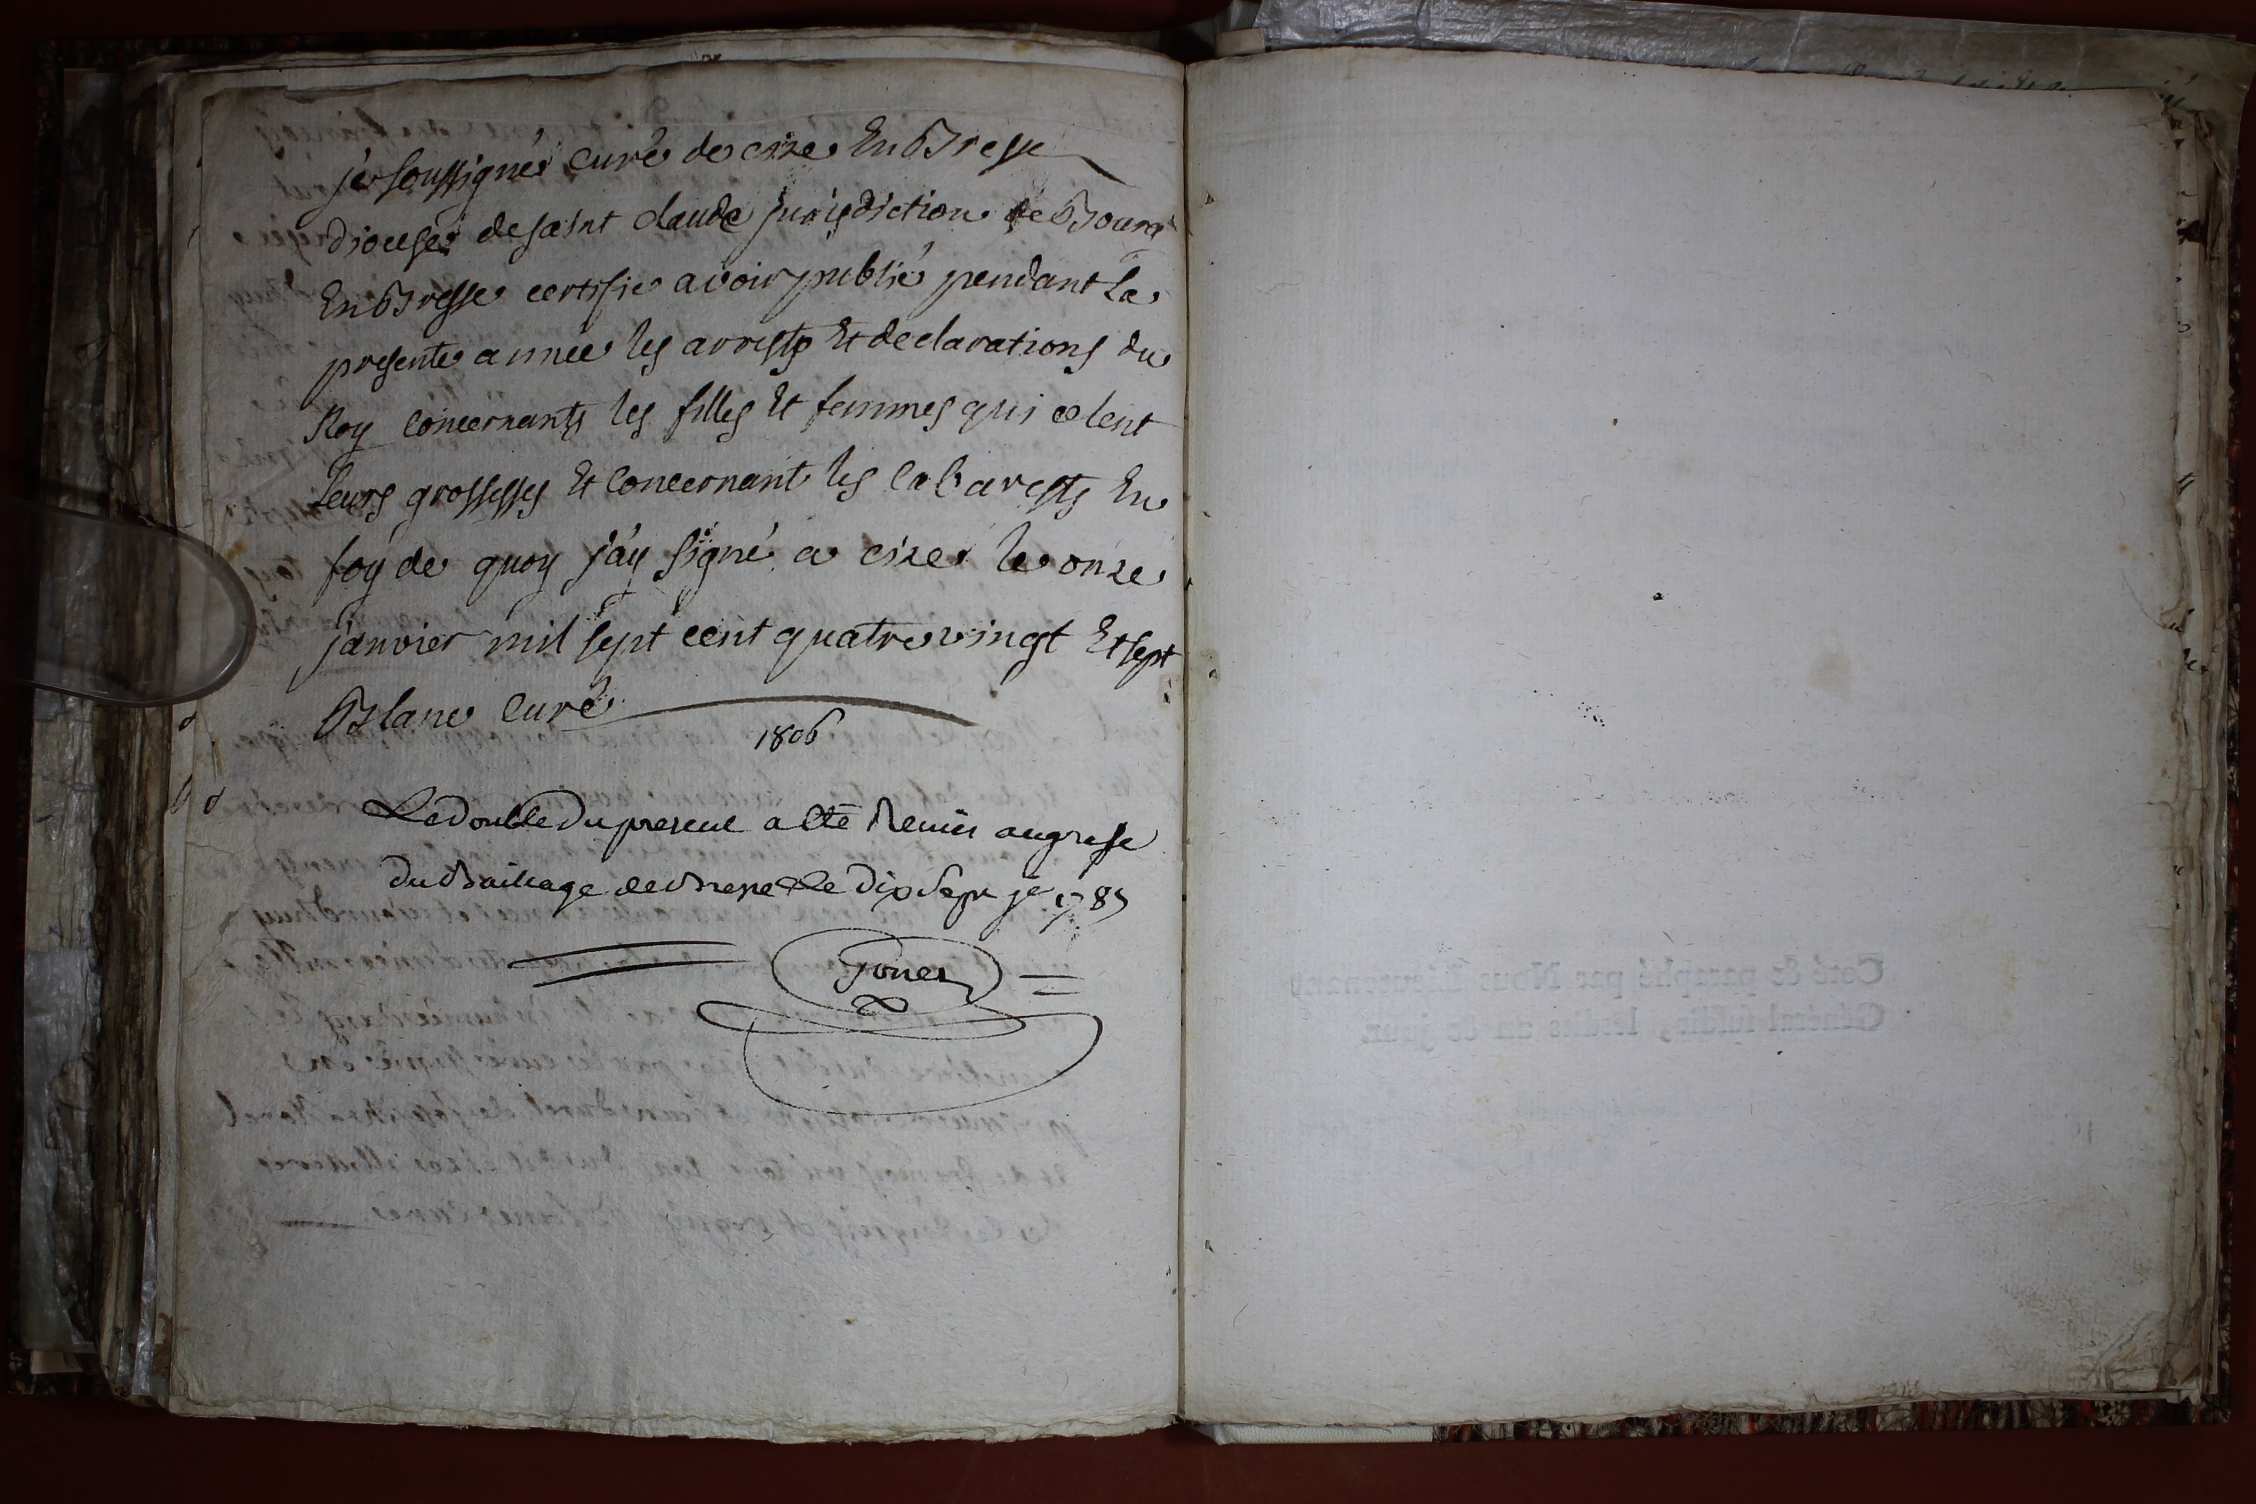 je soussigné curé de cize En Bresse
diocese de saint claude jurisdiction de Bourg
En Bresse certifie avoir publié pendant La
presente année les arrests Et declarations du
Roy concernants les filles Et femmes qui celent
Leurs grossesses Et concernant les cabarests En
foy de quoy j'ay signé a cize le onze
janvier mil sept cent quatre vingt Et sept
Blanc curé
1806
Le double du present a Eté Remis au grefe
du Bailliage de Bresse Le dix sept jer 1787
Coté & paraphé par Nous Lieutenant
Général susdit, lesdits an & jour.